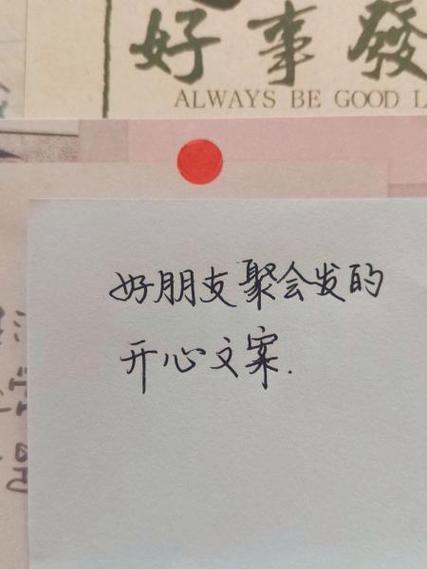 好事發
ALWAYS BE GOOD L
好朋友聚会发的
开心文案.